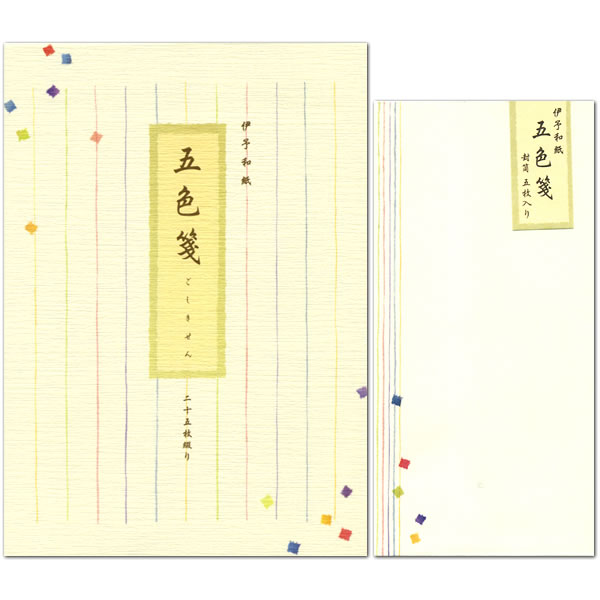 伊予和紙
五色箋
ごしきせん
二十五枚綴り
伊予和紙
五色箋
封筒 五枚入り